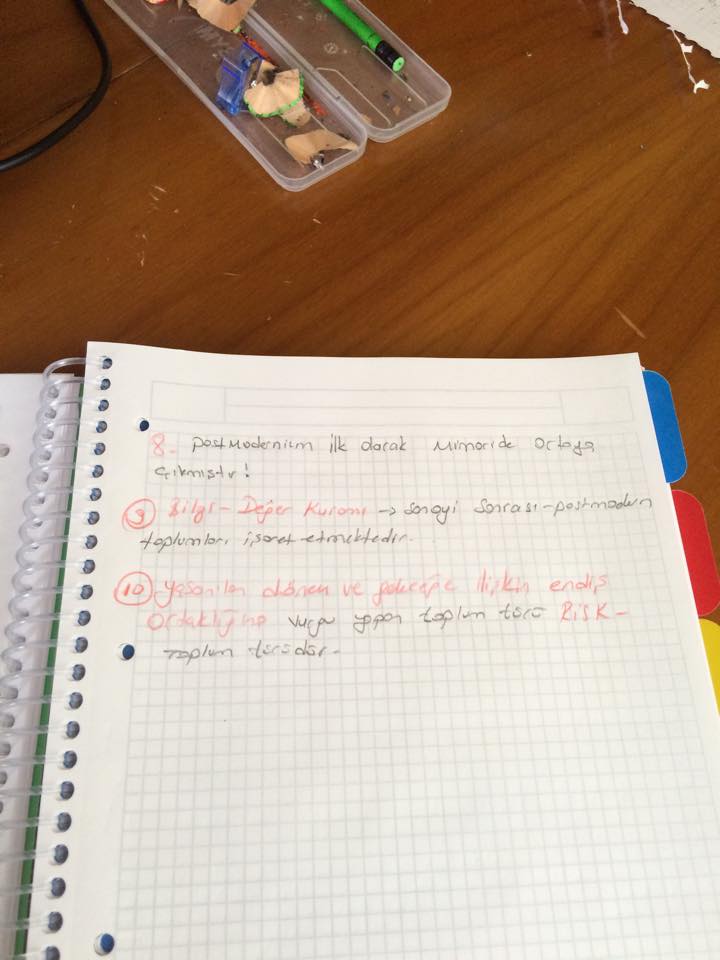 8- Postmodernizm ilk olarak Mimaride Ortaya
Çıkmıştır!
9 Bilgi-Değer Kuramı → Sanayi Sonrası-postmodern
toplumları işaret etmektedir.
10 yaşanılan dönem ve geleceğe ilişkin endişe
Ortaklığına vurgu yapan toplum türü RİSK-
toplum türüdür.